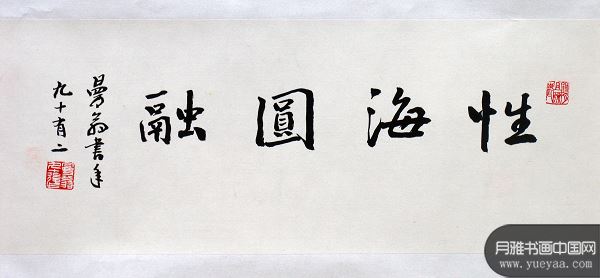 性海圓融
曼翁書年
九十有二
月雅书画中国网
www.yueyaa.com